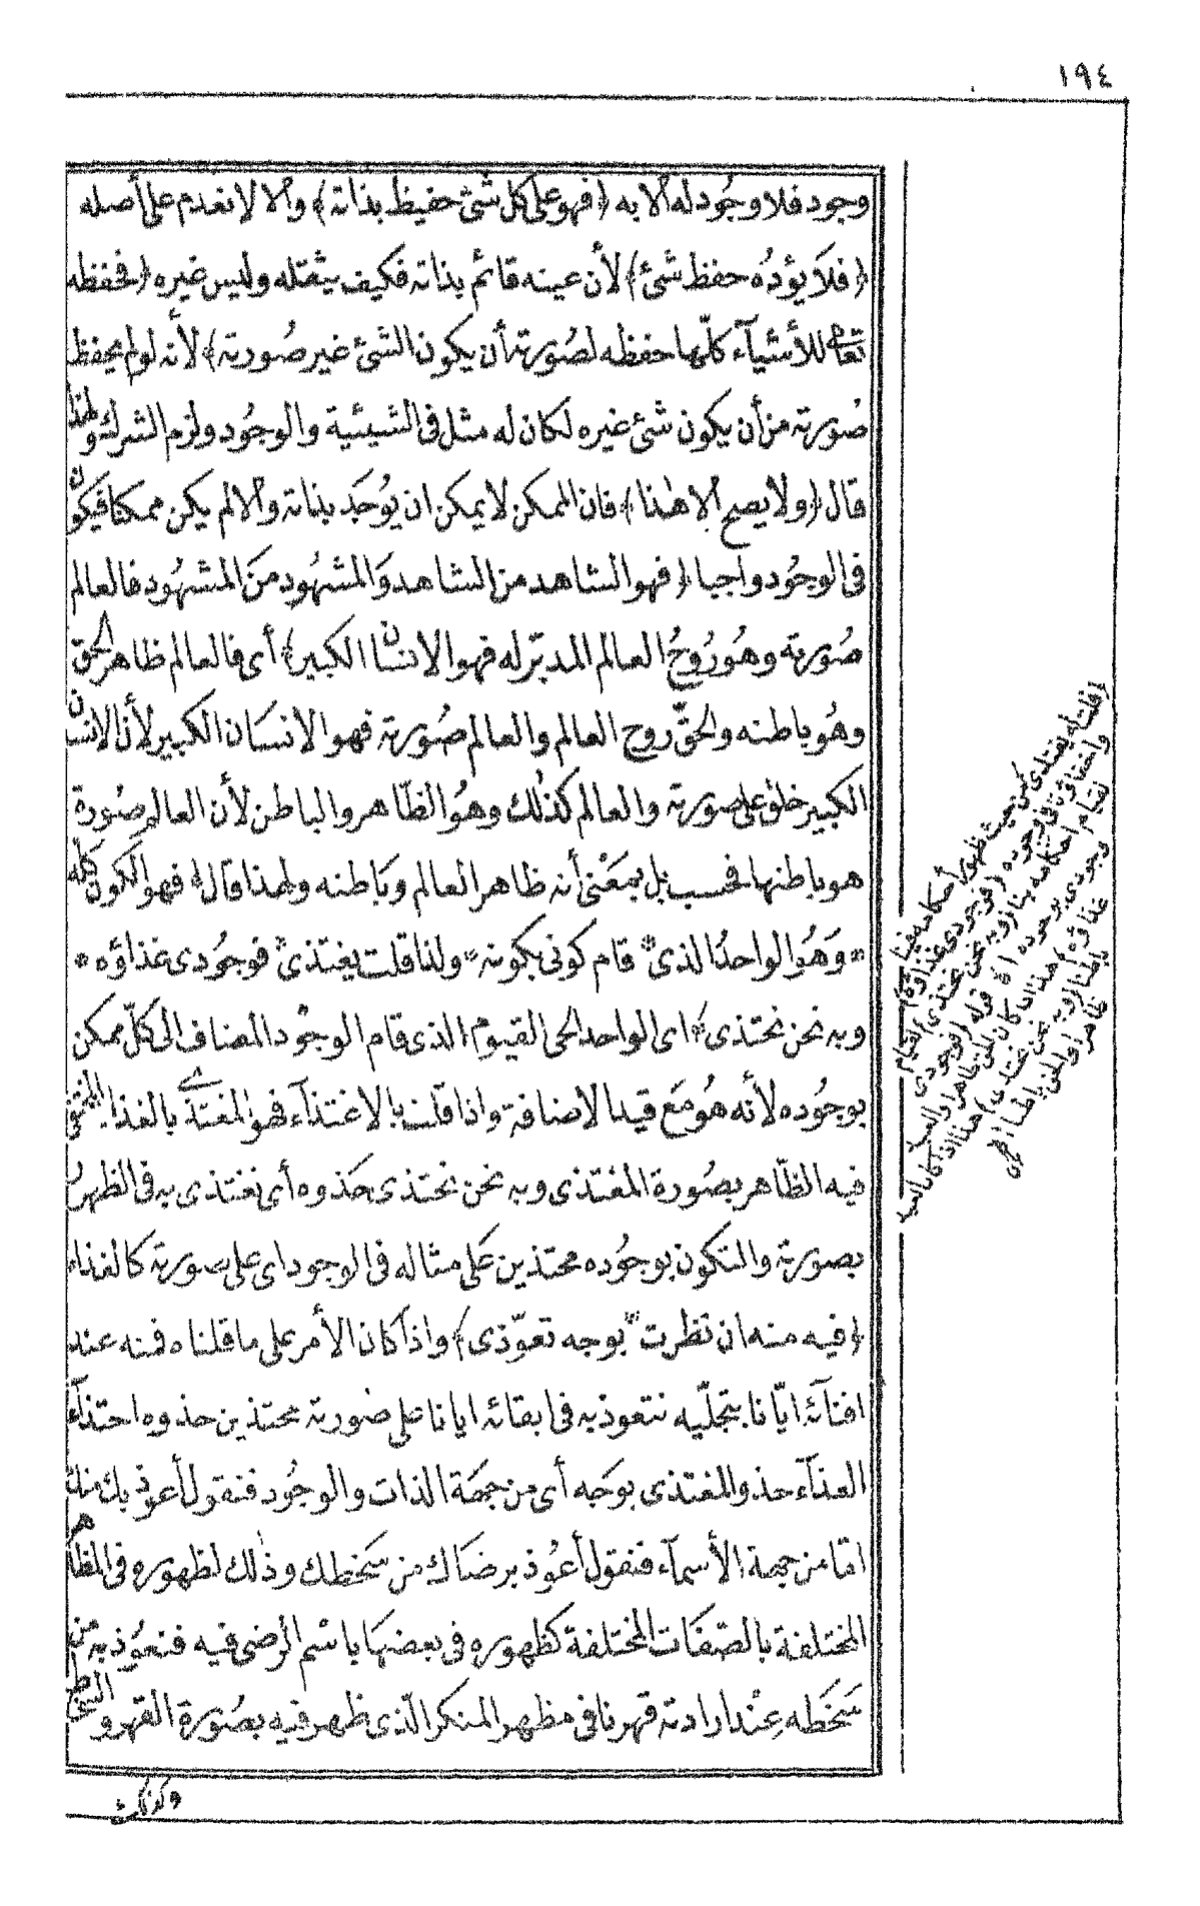 ١٩٤
وجود فلا وجود له الا به ﴿فهو على كل شئ حفيظ بذاته﴾ والا لانعدم على أصله
﴿فلا يؤده حفظ شئ﴾ لأن عينه قائم بذاته فكيف يثقله وليس غيره ﴿فحفظه
تعالى للأشيآء كلّها حفظه لصورته أن يكون الشئ غير صورته﴾ لأنه لو لم يحفظ
صورته من أن يكون شئ غيره لكان له مثل فى الشيئية والوجود ولزم الشرك ولهذا
قال ﴿ولا يصح الا هذا﴾ فان الممكن لا يمكن ان يوجد بذاته والا لم يكن ممكنا فيكون
فى الوجود واجبا ﴿فهو الشاهد من الشاهد والمشهود من المشهود فالعالم
صورته وهو روح العالم المدبّر له فهو الانسان الكبير﴾ أى فالعالم ظاهر الحق
وهو باطنه والحقّ روح العالم والعالم صورته فهو الانسان الكبير لأن الانسان
الكبير خلق على صورته والعالم كذلك وهو الظّاهر والباطن لأن العالم صورة
هو باطنها فحسب بل بمعنى أنه ظاهر العالم وباطنه ولهذا قال ﴿فهو الكون كله
* وهو الواحد الذى * قام كونى بكونه * ولذا قلت يغتذى * فوجودى غذاؤه *
وبه نحن نحتذى﴾ اى الواحد الحى القيوم الذى قام الوجود المضاف الى كلّ ممكن
بوجوده لأنه هو مع قيد الاضافة واذا قلت بالاغتذآء فهو المغتذى بالغذا المختفى
فيه الظّاهر بصورة المغتذى وبه نحن نحتذى حذوه أى نغتذى به فى الظهور
بصورته والتكون بوجوده محتذين على مثاله فى الوجود اى على صورته كالغذاء
﴿فيه منه ان نظرت * بوجه تعوّذى﴾ واذا كان الأمر على ما قلناه فمنه عند
افنآئه ايّانا بتجلّيه نتعوذ به فى ابقائه ايانا على صورته محتذين حذوه احتذآء
الغذآء حذو المغتذى بوجه أى من جهة الذات والوجود فنقول أعوذ بك منك
امّا من جهة الأسمآء فنقول أعوذ برضاك من سخطك وذلك لظهوره فى المظاهر
المختلفة بالصّفات المختلفة كظهوره فى بعضها باسم الرضى فيه فنعوذ به من
سخطه عند ارادته قهرنا فى مظهر المنكر الّذى ظهر فيه بصورة القهر والسخط